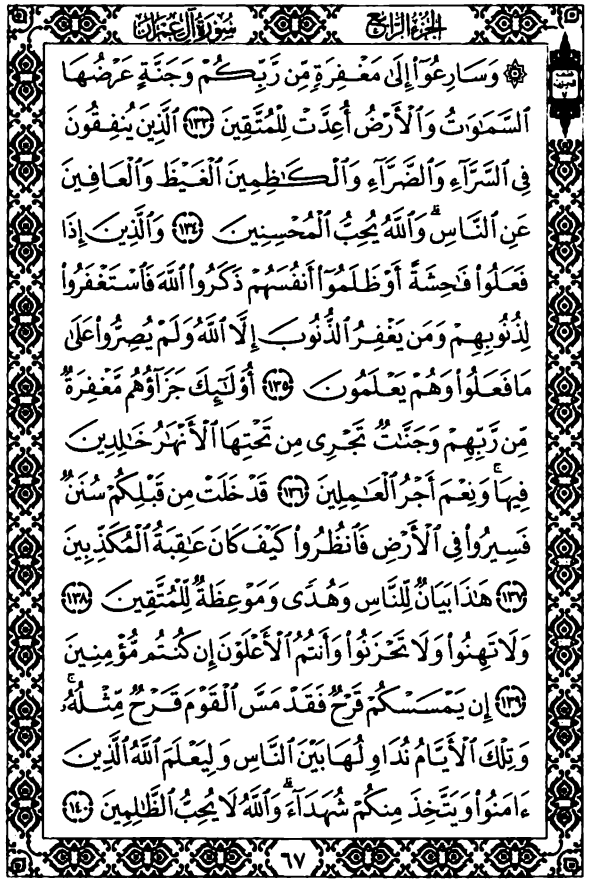 الجزء الرابع
سورة آل عمران
۞ وَسَارِعُوٓا۟ إِلَىٰ مَغْفِرَةٍ مِّن رَّبِّكُمْ وَجَنَّةٍ عَرْضُهَا
السَّمَٰوَٰتُ وَالْأَرْضُ أُعِدَّتْ لِلْمُتَّقِينَ ١٣٣ الَّذِينَ يُنفِقُونَ
فِى السَّرَّآءِ وَالضَّرَّآءِ وَالْكَٰظِمِينَ الْغَيْظَ وَالْعَافِينَ
عَنِ النَّاسِ ۗ وَاللَّهُ يُحِبُّ الْمُحْسِنِينَ ١٣٤ وَالَّذِينَ إِذَا
فَعَلُوا۟ فَٰحِشَةً أَوْ ظَلَمُوٓا۟ أَنفُسَهُمْ ذَكَرُوا۟ اللَّهَ فَاسْتَغْفَرُوا۟
لِذُنُوبِهِمْ وَمَن يَغْفِرُ الذُّنُوبَ إِلَّا اللَّهُ وَلَمْ يُصِرُّوا۟ عَلَىٰ
مَا فَعَلُوا۟ وَهُمْ يَعْلَمُونَ ١٣٥ أُو۟لَٰٓئِكَ جَزَآؤُهُم مَّغْفِرَةٌ
مِّن رَّبِّهِمْ وَجَنَّٰتٌ تَجْرِى مِن تَحْتِهَا الْأَنْهَٰرُ خَٰلِدِينَ
فِيهَا ۚ وَنِعْمَ أَجْرُ الْعَٰمِلِينَ ١٣٦ قَدْ خَلَتْ مِن قَبْلِكُمْ سُنَنٌ
فَسِيرُوا۟ فِى الْأَرْضِ فَانظُرُوا۟ كَيْفَ كَانَ عَٰقِبَةُ الْمُكَذِّبِينَ
١٣٧ هَٰذَا بَيَانٌ لِّلنَّاسِ وَهُدًى وَمَوْعِظَةٌ لِّلْمُتَّقِينَ ١٣٨
وَلَا تَهِنُوا۟ وَلَا تَحْزَنُوا۟ وَأَنتُمُ الْأَعْلَوْنَ إِن كُنتُم مُّؤْمِنِينَ
١٣٩ إِن يَمْسَسْكُمْ قَرْحٌ فَقَدْ مَسَّ الْقَوْمَ قَرْحٌ مِّثْلُهُۥ ۚ
وَتِلْكَ الْأَيَّامُ نُدَاوِلُهَا بَيْنَ النَّاسِ وَلِيَعْلَمَ اللَّهُ الَّذِينَ
ءَامَنُوا۟ وَيَتَّخِذَ مِنكُمْ شُهَدَآءَ ۗ وَاللَّهُ لَا يُحِبُّ الظَّٰلِمِينَ ١٤٠
٦٧